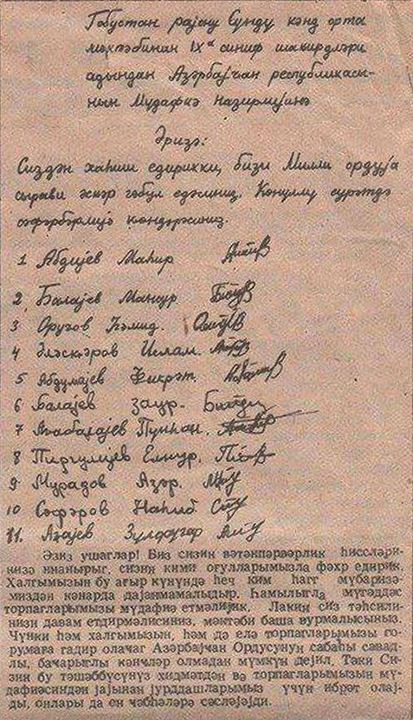 Гобустан рајону Сунду кәнд орта
мәктәбинин IXª синиф шакирдләри
адындан Азәрбајҹан республикасы-
нын Мудафиә назирлијинә
Әризә:
Сиздән хаһиш едирикки, бизи Милли ордуја
сырави әскәр гәбул едәсиниз. Көнуллу сурәтдә
сәфәрбәрлијә көндәрәсиниз.
1 Абдијев Маһир
2 Балајев Манур
3 Оруҹов Һәмид.
4 Әләскәров Ислам.
5 Абдулајев Фикрәт.
6 Балајев Заур.
7 Ағабалајев Пүнһан.
8 Пиргулијев Елнур.
9 Мурадов Азәр.
10 Сәфәров Наһид
11. Ағајев Зулфугар
Әзиз ушаглар! Биз сизин вәтәнпәрвәрлик һиссләри-
низә инанырыг, сизин кими оғулларымызла фәхр едирик.
Халгымызын бу ағыр күнүндә һеч ким һагг мүбаризә-
миздән кәнарда дајанмамалыдыр. Һамылыгла мүгәддәс
торпагларымызы мүдафиә етмәлијик. Лакин сиз тәһсили-
низи давам етдирмәлисиниз, мәктәби баша вурмалысыныз.
Чүнки һәм халгымызын, һәм дә елә торпагларымызы го-
румаға гадир олачаг Азәрбајҹан Ордусунун сабаһы савад-
лы, баҹарыглы кәнҹләр олмадан мүмкүн дејил. Тәки Си-
зин бу тәшәббүсүнүз хидмәтдән вә торпагларымызын мү-
дафиәсиндән јајынан јурддашларымыз үчүн ибрәт олај-
ды, онлары да ен ҹәбһәләрә сәсләјәјди.